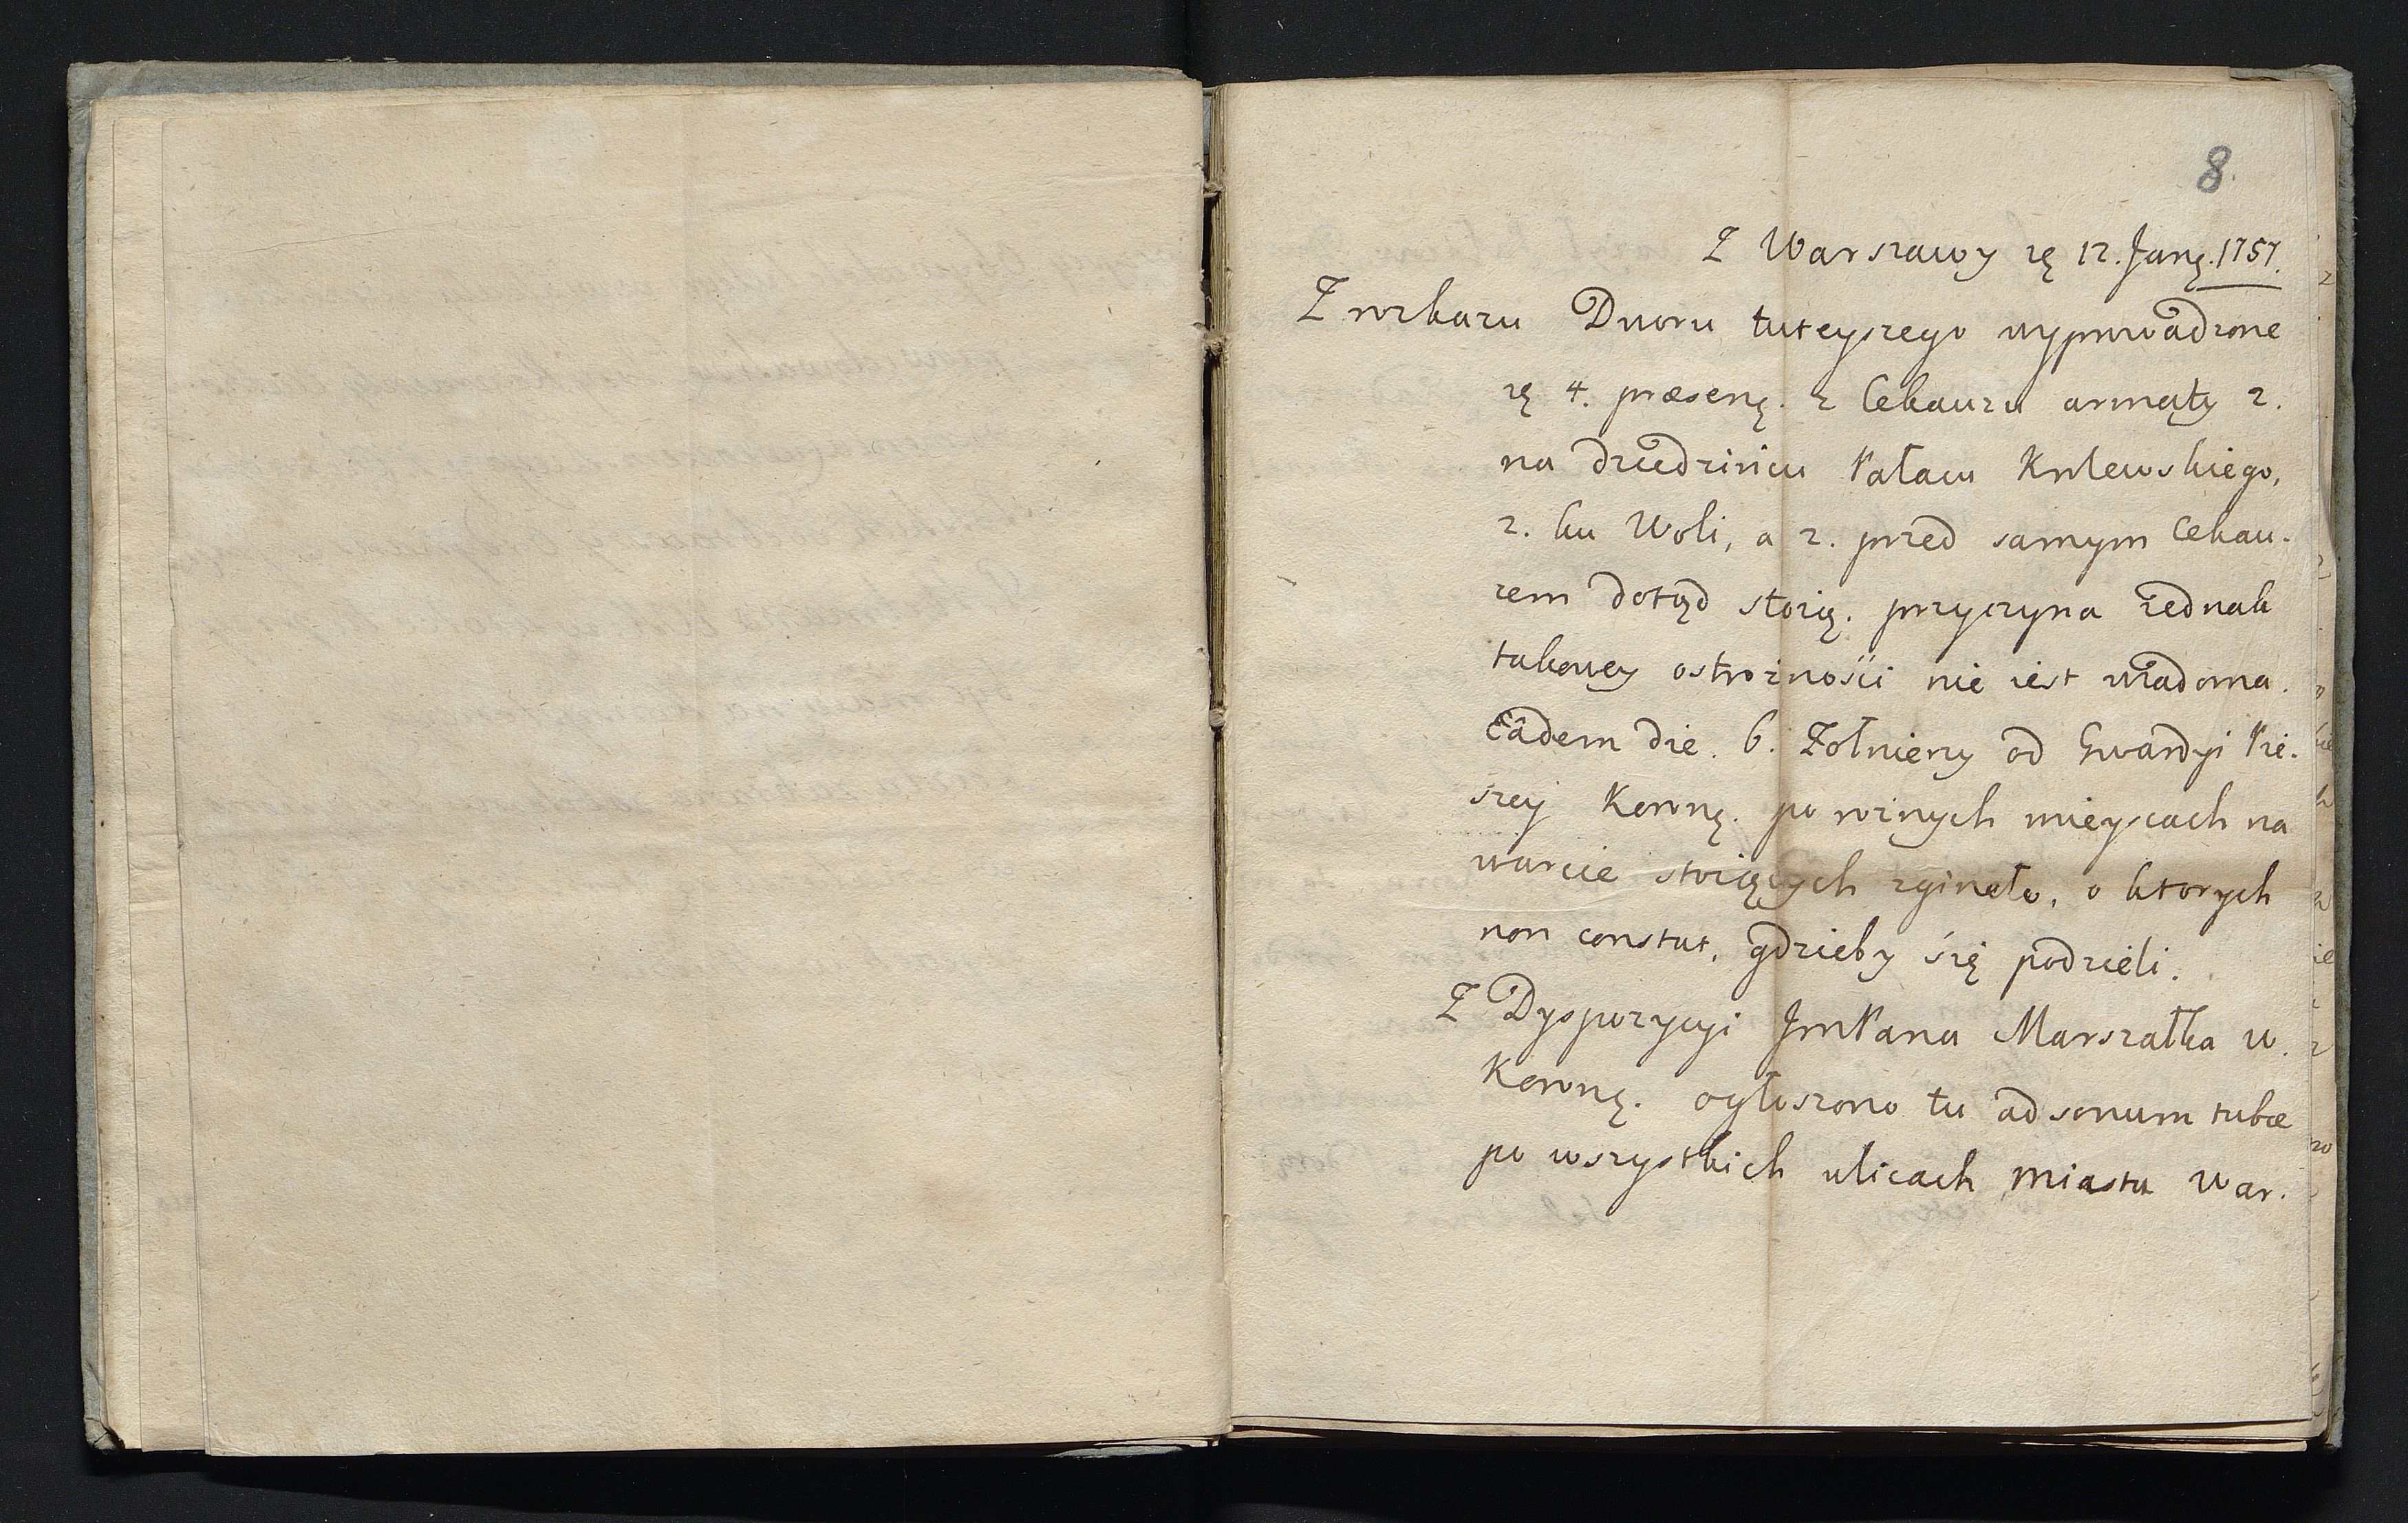 8
Z Warszawy zę 12. Janę. 1757.
Z rozkazu Dworu tuteyszego wyprowadzone
zę 4. præsenę. z Cekauzu armaty 2.
na dziedzińcu Pałacu Krolewskiego,
2. ku Woli, a 2. przed samym Cekau-
zem dotąd stoią. przyczyna iednak
takowey ostrożności nie iest wiadoma.
Eâdem die. 6. Żołnierzy od Gwardyi Pie-
szey Koronę. po roznych mieyscach na
warcie stoiących zgineło, o ktorych
non constat, gdzieby się podzieli.
Z Dyspozycyi JmPana Marszałka W.
Koronę. ogłoszono tu ad sonum tubæ
po wszystkich ulicach miasta War-